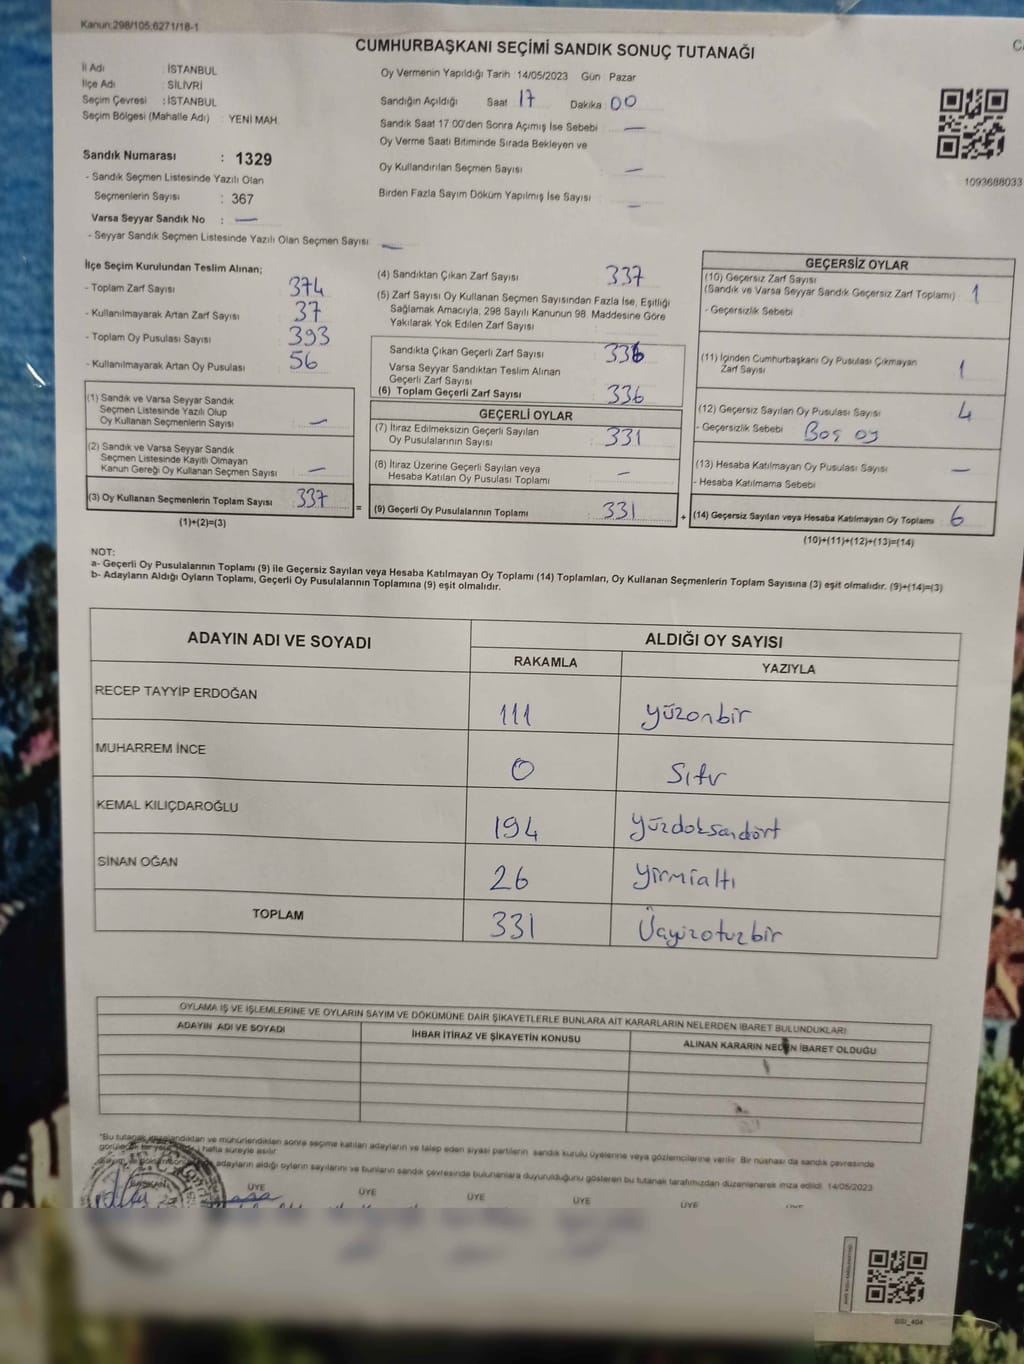 Kanun:298/105;6271/18-1
CUMHURBAŞKANI SEÇİMİ SANDIK SONUÇ TUTANAĞI
İl Adı : İSTANBUL
İlçe Adı : SİLİVRİ
Seçim Çevresi : İSTANBUL
Seçim Bölgesi (Mahalle Adı) : YENİ MAH.
Sandık Numarası : 1329
- Sandık Seçmen Listesinde Yazılı Olan
Seçmenlerin Sayısı : 367
Varsa Seyyar Sandık No : —
- Seyyar Sandık Seçmen Listesinde Yazılı Olan Seçmen Sayısı —
Oy Vermenin Yapıldığı Tarih : 14/05/2023 Gün : Pazar
Sandığın Açıldığı Saat 17 Dakika : 00
Sandık Saat 17:00'den Sonra Açılmış İse Sebebi —
Oy Verme Saati Bitiminde Sırada Bekleyen ve
Oy Kullandırılan Seçmen Sayısı —
Birden Fazla Sayım Döküm Yapılmış İse Sayısı —
1093688033
İlçe Seçim Kurulundan Teslim Alınan;
- Toplam Zarf Sayısı 374
- Kullanılmayarak Artan Zarf Sayısı 37
- Toplam Oy Pusulası Sayısı 393
- Kullanılmayarak Artan Oy Pusulası 56
(1) Sandık ve Varsa Seyyar Sandık
Seçmen Listesinde Yazılı Olup
Oy Kullanan Seçmenlerin Sayısı —
(2) Sandık ve Varsa Seyyar Sandık
Seçmen Listesinde Kayıtlı Olmayan
Kanun Gereği Oy Kullanan Seçmen Sayısı —
(3) Oy Kullanan Seçmenlerin Toplam Sayısı 337
(1)+(2)=(3)
=
(4) Sandıktan Çıkan Zarf Sayısı 337
(5) Zarf Sayısı Oy Kullanan Seçmen Sayısından Fazla İse, Eşitliği
Sağlamak Amacıyla, 298 Sayılı Kanunun 98. Maddesine Göre
Yakılarak Yok Edilen Zarf Sayısı
Sandıkta Çıkan Geçerli Zarf Sayısı 336
Varsa Seyyar Sandıktan Teslim Alınan
Geçerli Zarf Sayısı
(6) Toplam Geçerli Zarf Sayısı 336
GEÇERLİ OYLAR
(7) İtiraz Edilmeksizin Geçerli Sayılan
Oy Pusulalarının Sayısı 331
(8) İtiraz Üzerine Geçerli Sayılan veya
Hesaba Katılan Oy Pusulası Toplamı —
(9) Geçerli Oy Pusulalarının Toplamı 331
+
GEÇERSİZ OYLAR
(10) Geçersiz Zarf Sayısı
(Sandık ve Varsa Seyyar Sandık Geçersiz Zarf Toplamı) 1
- Geçersizlik Sebebi
(11) İçinden Cumhurbaşkanı Oy Pusulası Çıkmayan
Zarf Sayısı 1
(12) Geçersiz Sayılan Oy Pusulası Sayısı 4
- Geçersizlik Sebebi Boş oy
(13) Hesaba Katılmayan Oy Pusulası Sayısı —
- Hesaba Katılmama Sebebi
(14) Geçersiz Sayılan veya Hesaba Katılmayan Oy Toplamı 6
(10)+(11)+(12)+(13)=(14)
NOT:
a- Geçerli Oy Pusulalarının Toplamı (9) ile Geçersiz Sayılan veya Hesaba Katılmayan Oy Toplamı (14) Toplamları, Oy Kullanan Seçmenlerin Toplam Sayısına (3) eşit olmalıdır. (9)+(14)=(3)
b- Adayların Aldığı Oyların Toplamı, Geçerli Oy Pusulalarının Toplamına (9) eşit olmalıdır.
ADAYIN ADI VE SOYADI ALDIĞI OY SAYISI
RAKAMLA YAZIYLA
RECEP TAYYİP ERDOĞAN 111 yüzonbir
MUHARREM İNCE 0 Sıfır
KEMAL KILIÇDAROĞLU 194 yüzdoksandört
SİNAN OĞAN 26 yirmialtı
TOPLAM 331 Üçyüzotuzbir
OYLAMA İŞ VE İŞLEMLERİNE VE OYLARIN SAYIM VE DÖKÜMÜNE DAİR ŞİKAYETLERLE BUNLARA AİT KARARLARIN NELERDEN İBARET BULUNDUKLARI
ADAYIN ADI VE SOYADI İHBAR İTİRAZ VE ŞİKAYETİN KONUSU ALINAN KARARIN NEDEN İBARET OLDUĞU
*Bu tutanak imzalandıktan ve mühürlendikten sonra seçime katılan adayların ve talep eden siyasi partilerin sandık kurulu üyelerine veya gözlemcilerine verilir. Bir nüshası da sandık çevresinde
hafta süreyle asılır.
adayların aldığı oyların sayılarını ve bunların sandık çevresinde bulunanlara duyurulduğunu gösteren bu tutanak tarafımızdan düzenlenerek imza edildi. 14/05/2023
BAŞKAN ÜYE ÜYE ÜYE ÜYE ÜYE